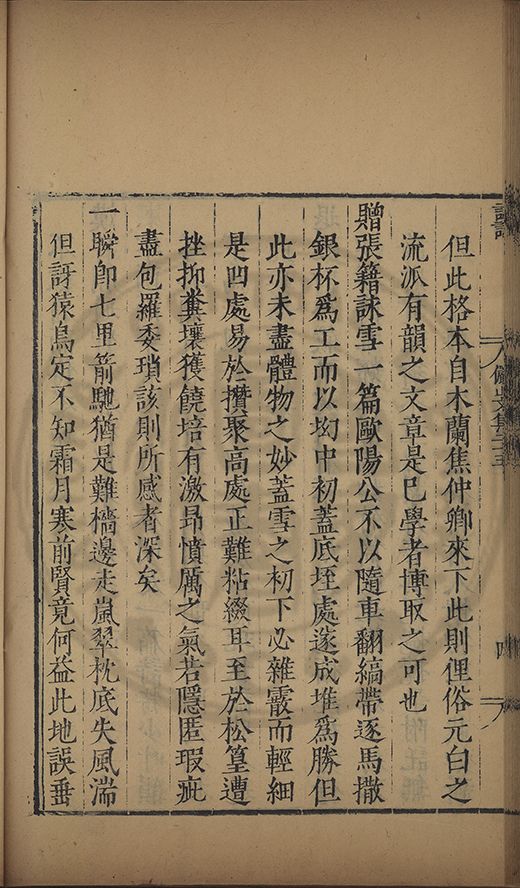 但此格本自木蘭焦仲卿來下此則俚俗元白之
流派有韻之文章是已學者博取之可也
贈張籍詠雪一篇歐陽公不以隨車翻縞帶逐馬撒
銀杯爲工而以坳中初蓋底垤處遂成堆爲勝但
此亦未盡體物之妙蓋雪之初下必雜霰而輕細
是凹處易於攢聚高處正難粘綴耳至於松篁遭
挫抑糞壤獲饒培有激昻憤厲之氣若隱匿瑕疵
盡包羅委瑣該則所感者深矣
一瞬卽七里箭馳猶是難檣邊走嵐翠枕底失風湍
但訝猿鳥定不知霜月寒前賢竟何益此地誤垂